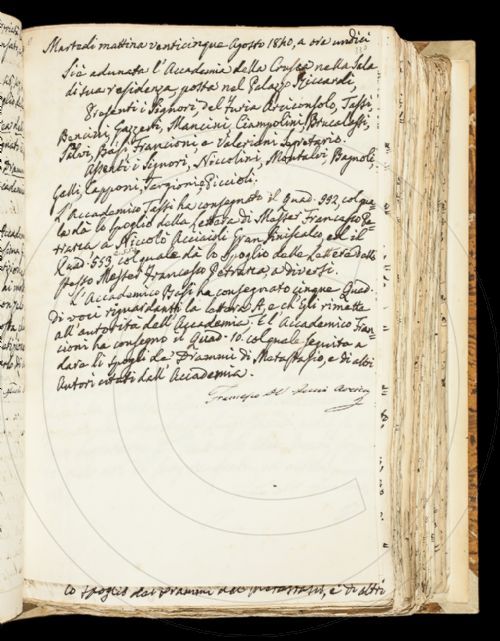 Martedi mattina venticinque Agosto 1840, a ore undici
Si è adunata l'Accademia della Crusca nella Sala
di sua residenza posta nel Palazzo Riccardi,
Presenti i Signori, Del Furia Arciconsolo, Tassi,
Bencini, Gazzeri, Mancini, Ciampolini, Brucalassi,
Salvi, Becchi, Francioni, e Valeriani Segretario.
Assenti i Signori, Niccolini, Montalvi, Bagnoli,
Gelli, Capponi, Targioni, Piccioli.
L'Accademico Tassi ha consegnato il Quad. 552 col qua=
le dà lo Spoglio della Lettera di Messer Francesco Pe=
trarca a Niccolò Acciaioli Gran Siniscalco, ed il
Quad. 553 col quale dà lo Spoglio delle Lettere dello
stesso Messer Francesco Petrarca a diversi.
L'Accademico ha consegnato cinque Quad.
di voci riguardanti la lettera A, e ch'Egli rimette
all'autorità dell'Accademia. E l'Accademico Fran=
cioni ha consegno il Quad. 10. col quale seguita a
dare li Spogli de' Drammi di Metastasio, e di altri
Autori citati dall'Accademia.
Francesco Del Furia Arcicon
lo Spoglio dei Drammi del Metastasio, e di altri